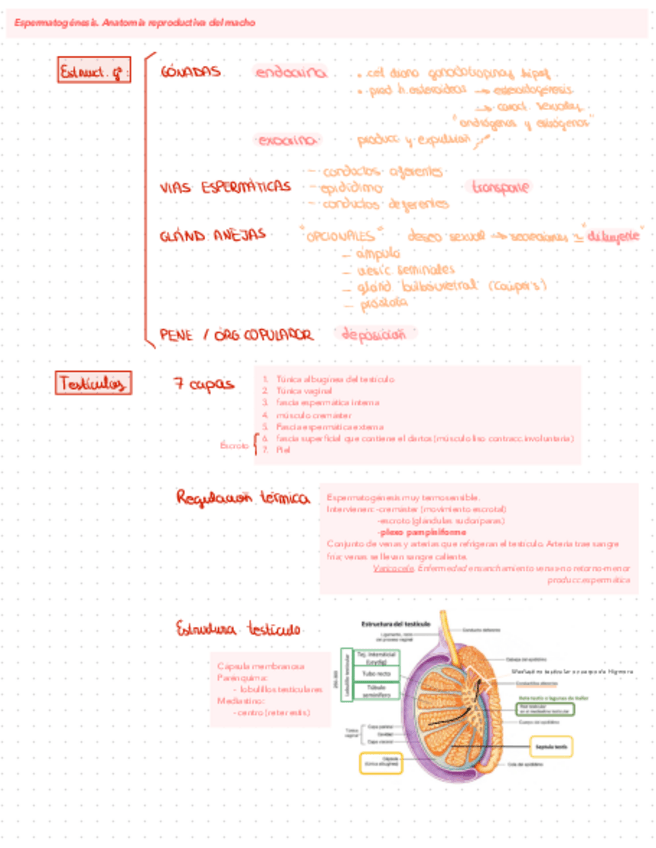 Espermatogénesis. Anatomía reproductiva del macho
Estruct. ♂:
GÓNADAS
endocrina
prod h. esteroideos → espermatogénesis
→ caract. sexuales
"andrógenos y estrógenos"
exocrina
producc y expulsión
VIAS ESPERMÁTICAS
- conductos aferentes
- epidídimo
- conductos deferentes
transporte
GLÁND ANEJAS
"OPCIONALES"
deseo sexual → secreciones = "diluyente"
- ámpula
- vesic seminales
- gland bulbouretral (Cowper's)
- próstata
PENE / ORG COPULADOR
deposición
Testículos
7 capas
1. Túnica albuginea del testículo
2. Túnica vaginal
3. fascia espermática interna
4. músculo cremáster
5. Fascia espermatica externa
Escroto
6. fascia superficial que contiene el dartos (músculo liso contracc.involuntaria)
7. Piel
Regulación térmica
Espermatogénesis muy termosensible.
Intervienen: -cremáster (movimiento escrotal)
-escroto (glándulas sudoríparas)
-plexo pampiniforme
Conjunto de venas y arterias que refrigeran el testículo. Arteria trae sangre
fria; venas se llevan sangre caliente.
Varicocele. Enfermedad ensanchamiento venas no retorno menor
producc espermática
Estructura testículo
Capsula membranosa
Parénquima:
- lobulillos testiculares
Mediastino:
- centro (rete testis)
Estructura del testículo
Conducto deferente
Tej. intersticial
(Leydig)
Tubo recto
Túbulo
seminífero
Cabeza del epidídimo
Mediastino testicular o cuerpo de Highmore
Rete testis o lagunas de Haller
Red testicular
en el mediastino testicular
Cuerpo del epidídimo
Septula testis
Cola del epidídimo
Túnica
vaginal
Capa parietal
Cavidad
Capa visceral
Cápsula
(túnica albugínea)